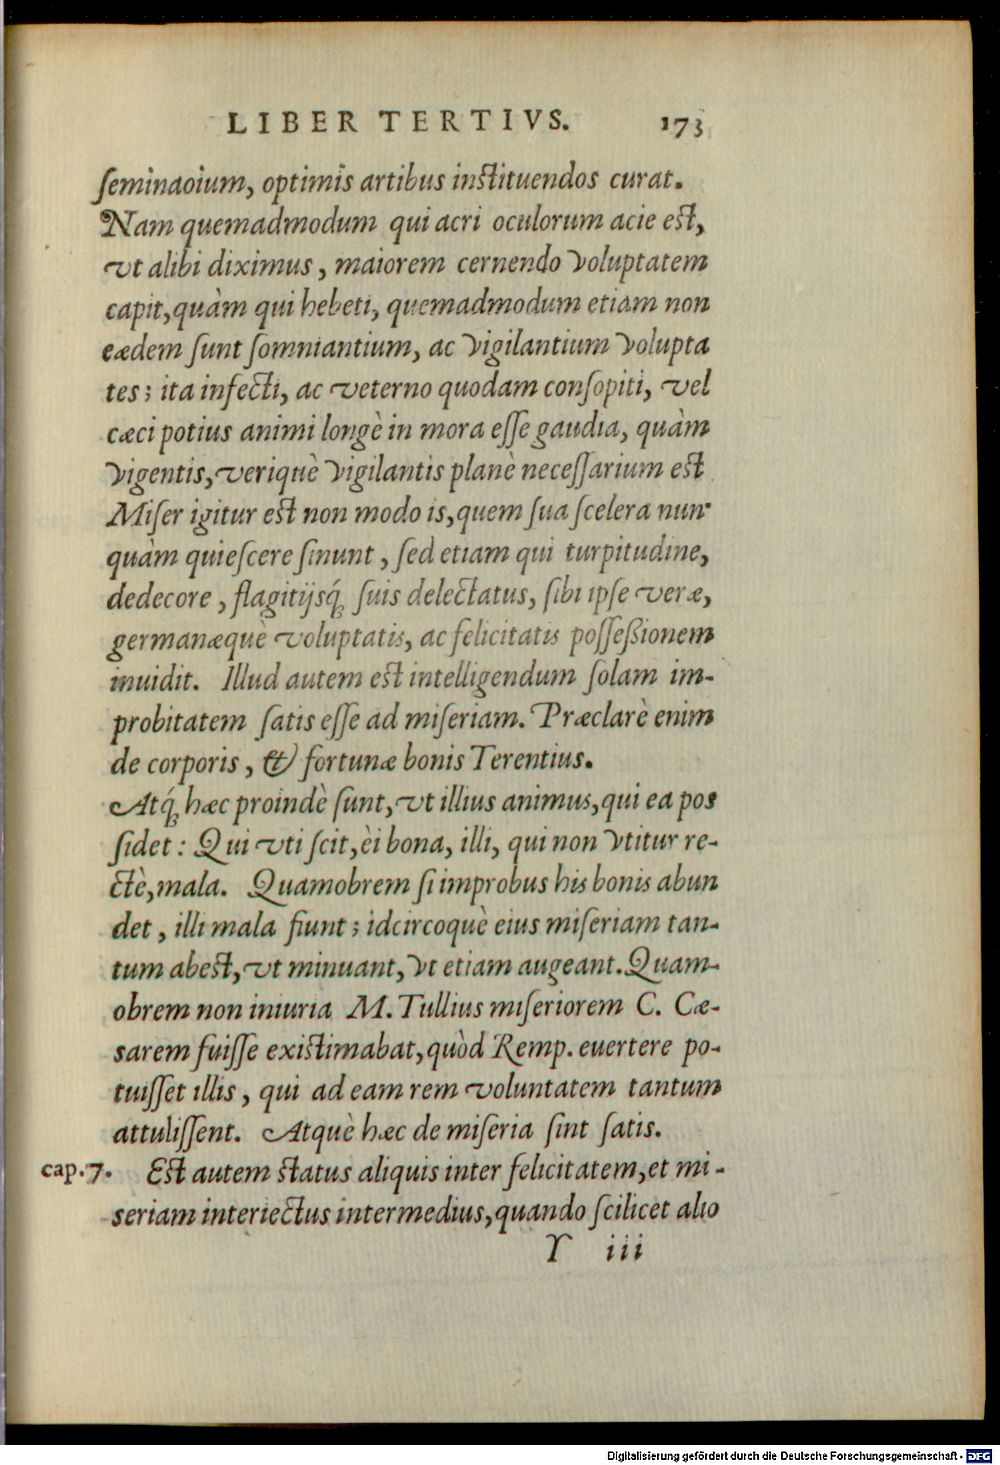 LIBER TERTIVS. 173
seminaoium, optimis artibus instituendos curat.
Nam quemadmodum qui acri oculorum acie est,
vt alibi diximus, maiorem cernendo voluptatem
capit, quàm qui hebeti, quemadmodum etiam non
eædem sunt somniantium, ac vigilantium volupta
tes; ita infecti, ac veterno quodam consopiti, vel
cæci potius animi longè in mora esse gaudia, quàm
vigentis, veriquè vigilantis planè necessarium est
Miser igitur est non modo is, quem sua scelera nun
quàm quiescere sinunt, sed etiam qui turpitudine,
dedecore, flagitijsq́; suis delectatus, sibi ipse veræ,
germanæquè voluptatis, ac felicitatis possessionem
inuidit. Illud autem est intelligendum solam im-
probitatem satis esse ad miseriam. Præclarè enim
de corporis, & fortunæ bonis Terentius.
Atq́; hæc proindè sunt, vt illius animus, qui ea pos
sidet: Qui vti scit, èi bona, illi, qui non vtitur re-
ctè, mala. Quamobrem si improbus his bonis abun
det, illi mala fiunt; idcircoquè eius miseriam tan-
tum abest, vt minuant, vt etiam augeant. Quam-
obrem non iniuria M. Tullius miseriorem C. Cæ-
sarem fuisse existimabat, quòd Remp. euertere po-
tuisset illis, qui ad eam rem voluntatem tantum
attulissent. Atquè hæc de miseria sint satis.
cap. 7. Est autem status aliquis inter felicitatem, et mi-
seriam interiectus intermedius, quando scilicet alio
Y iii
Digitalisierung gefördert durch die Deutsche Forschungsgemeinschaft - DFG